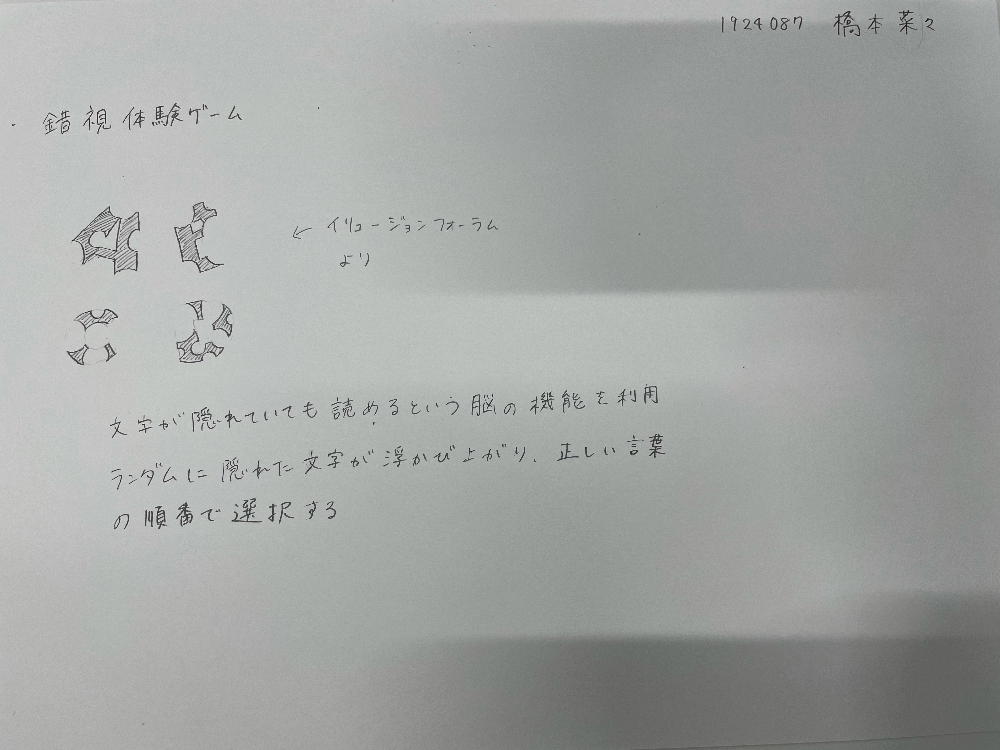 1924087 橋本菜々
・錯視体験ゲーム
← イリュージョンフォーラム
より
文字が隠れていても読めるという脳の機能を利用
ランダムに隠れた文字が浮かび上がり、正しい言葉
の順番で選択する